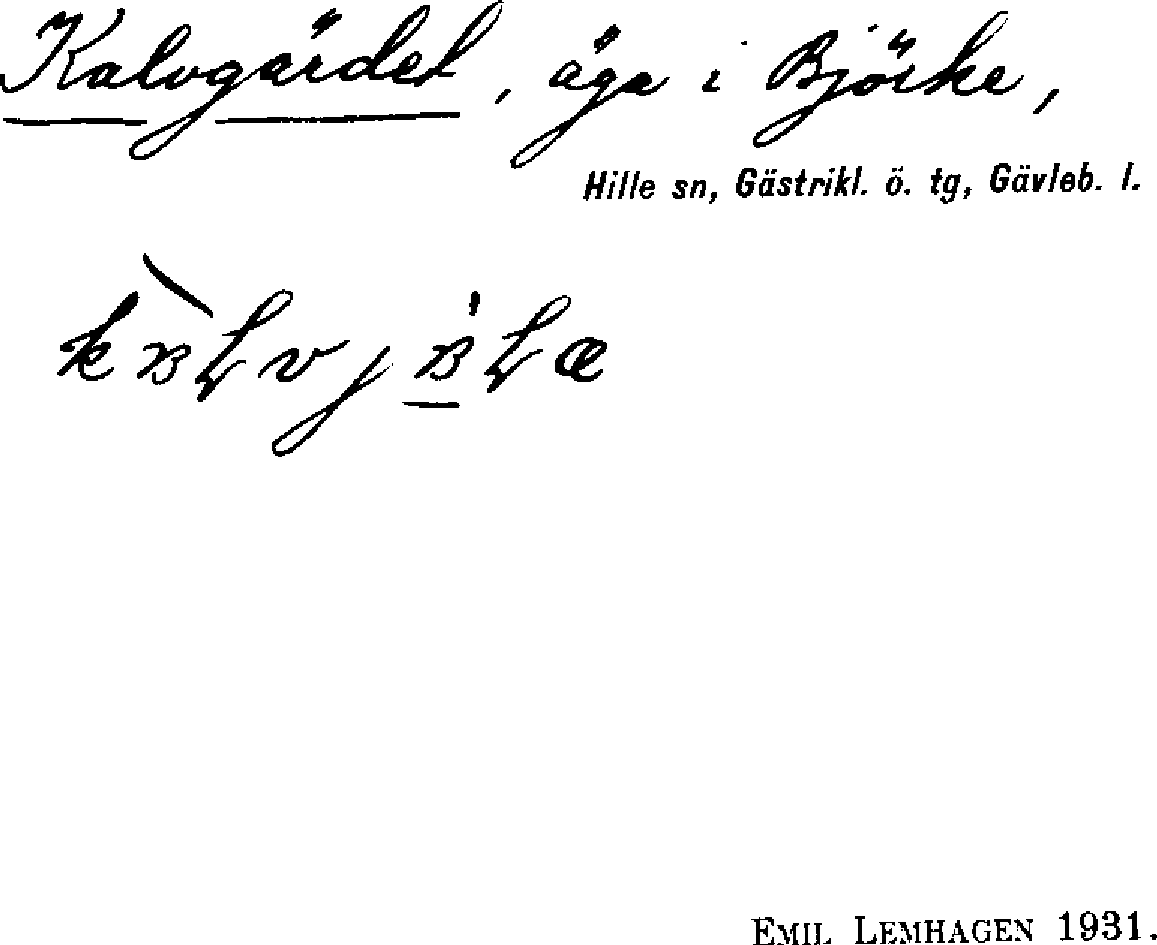 Kalvgärdet, äga i Björke,
Hille sn, Gästrikl. ö. tg, Gävleb. l.
EMIL LEMHAGEN 1931.